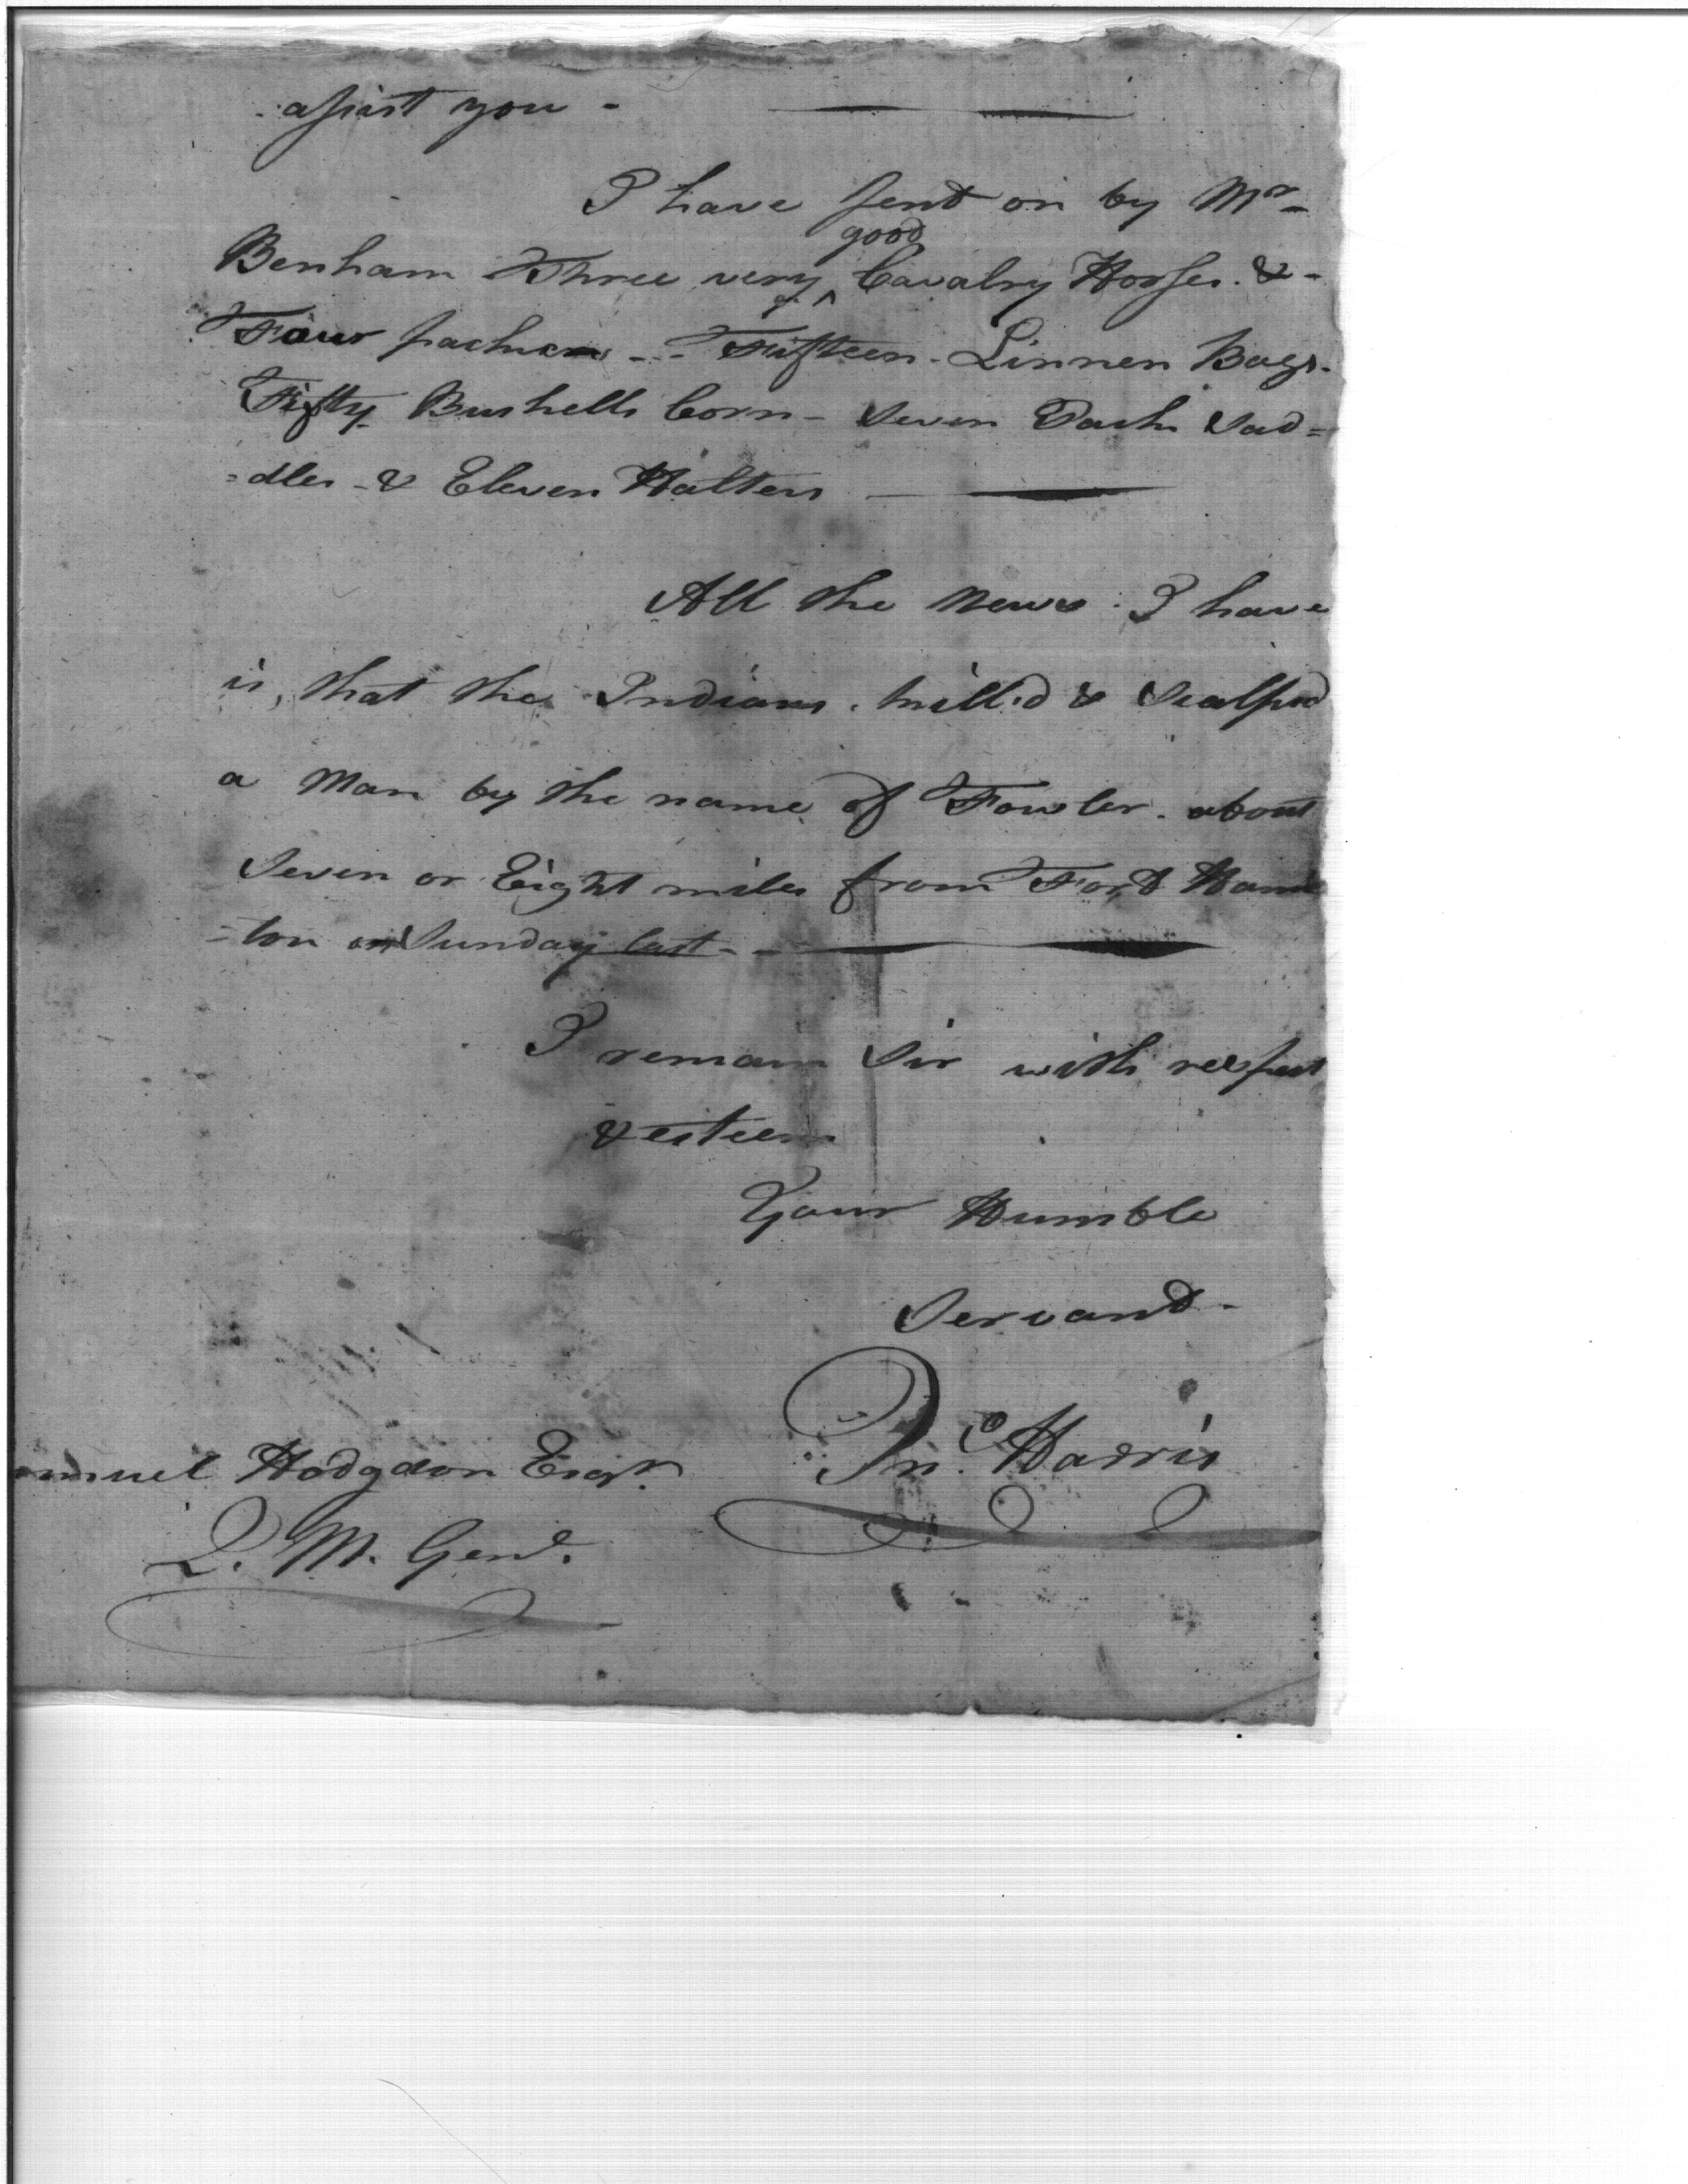 assist you -
I have sent on by Mr
good
Benham Three very ^ Cavalry Horses. & -
Four packers -- Fifteen - Linnen Bags.
Fifty Bushells Corn - Seven Pack Sad=
=dles - & Eleven Halters
All the News I have
is, that the Indians. kill'd & Scalped
a Man by the name of Fowler. about
Seven or Eight miles from Fort Hamil
=ton on Sunday last - -
I remain Sir with respect
& esteem
Your Humble
Servant.
Jno. Harris
amuel Hodgdon Esqr.
Q. M. Genl.